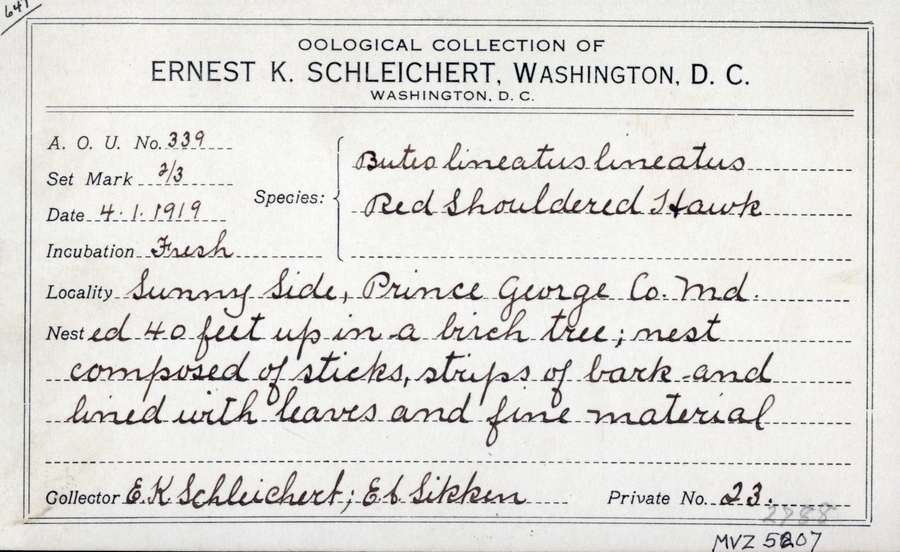 641
OOLOGICAL COLLECTION OF
ERNEST K. SCHLEICHERT, WASHINGTON, D. C.
WASHINGTON, D. C.
A. O. U. No. 339
Set Mark 2/3
Date 4.1.1919
Incubation Fresh
Species: Buteo lineatus lineatus
Red Shouldered Hawk
Locality Sunny Side, Prince George Co. Md.
Nested 40 feet up in a birch tree; nest
composed of sticks, strips of bark and
lined with leaves and fine material
Collector E.K. Schleichert; Ed Sikken Private No. 23.
2788
MVZ 5207